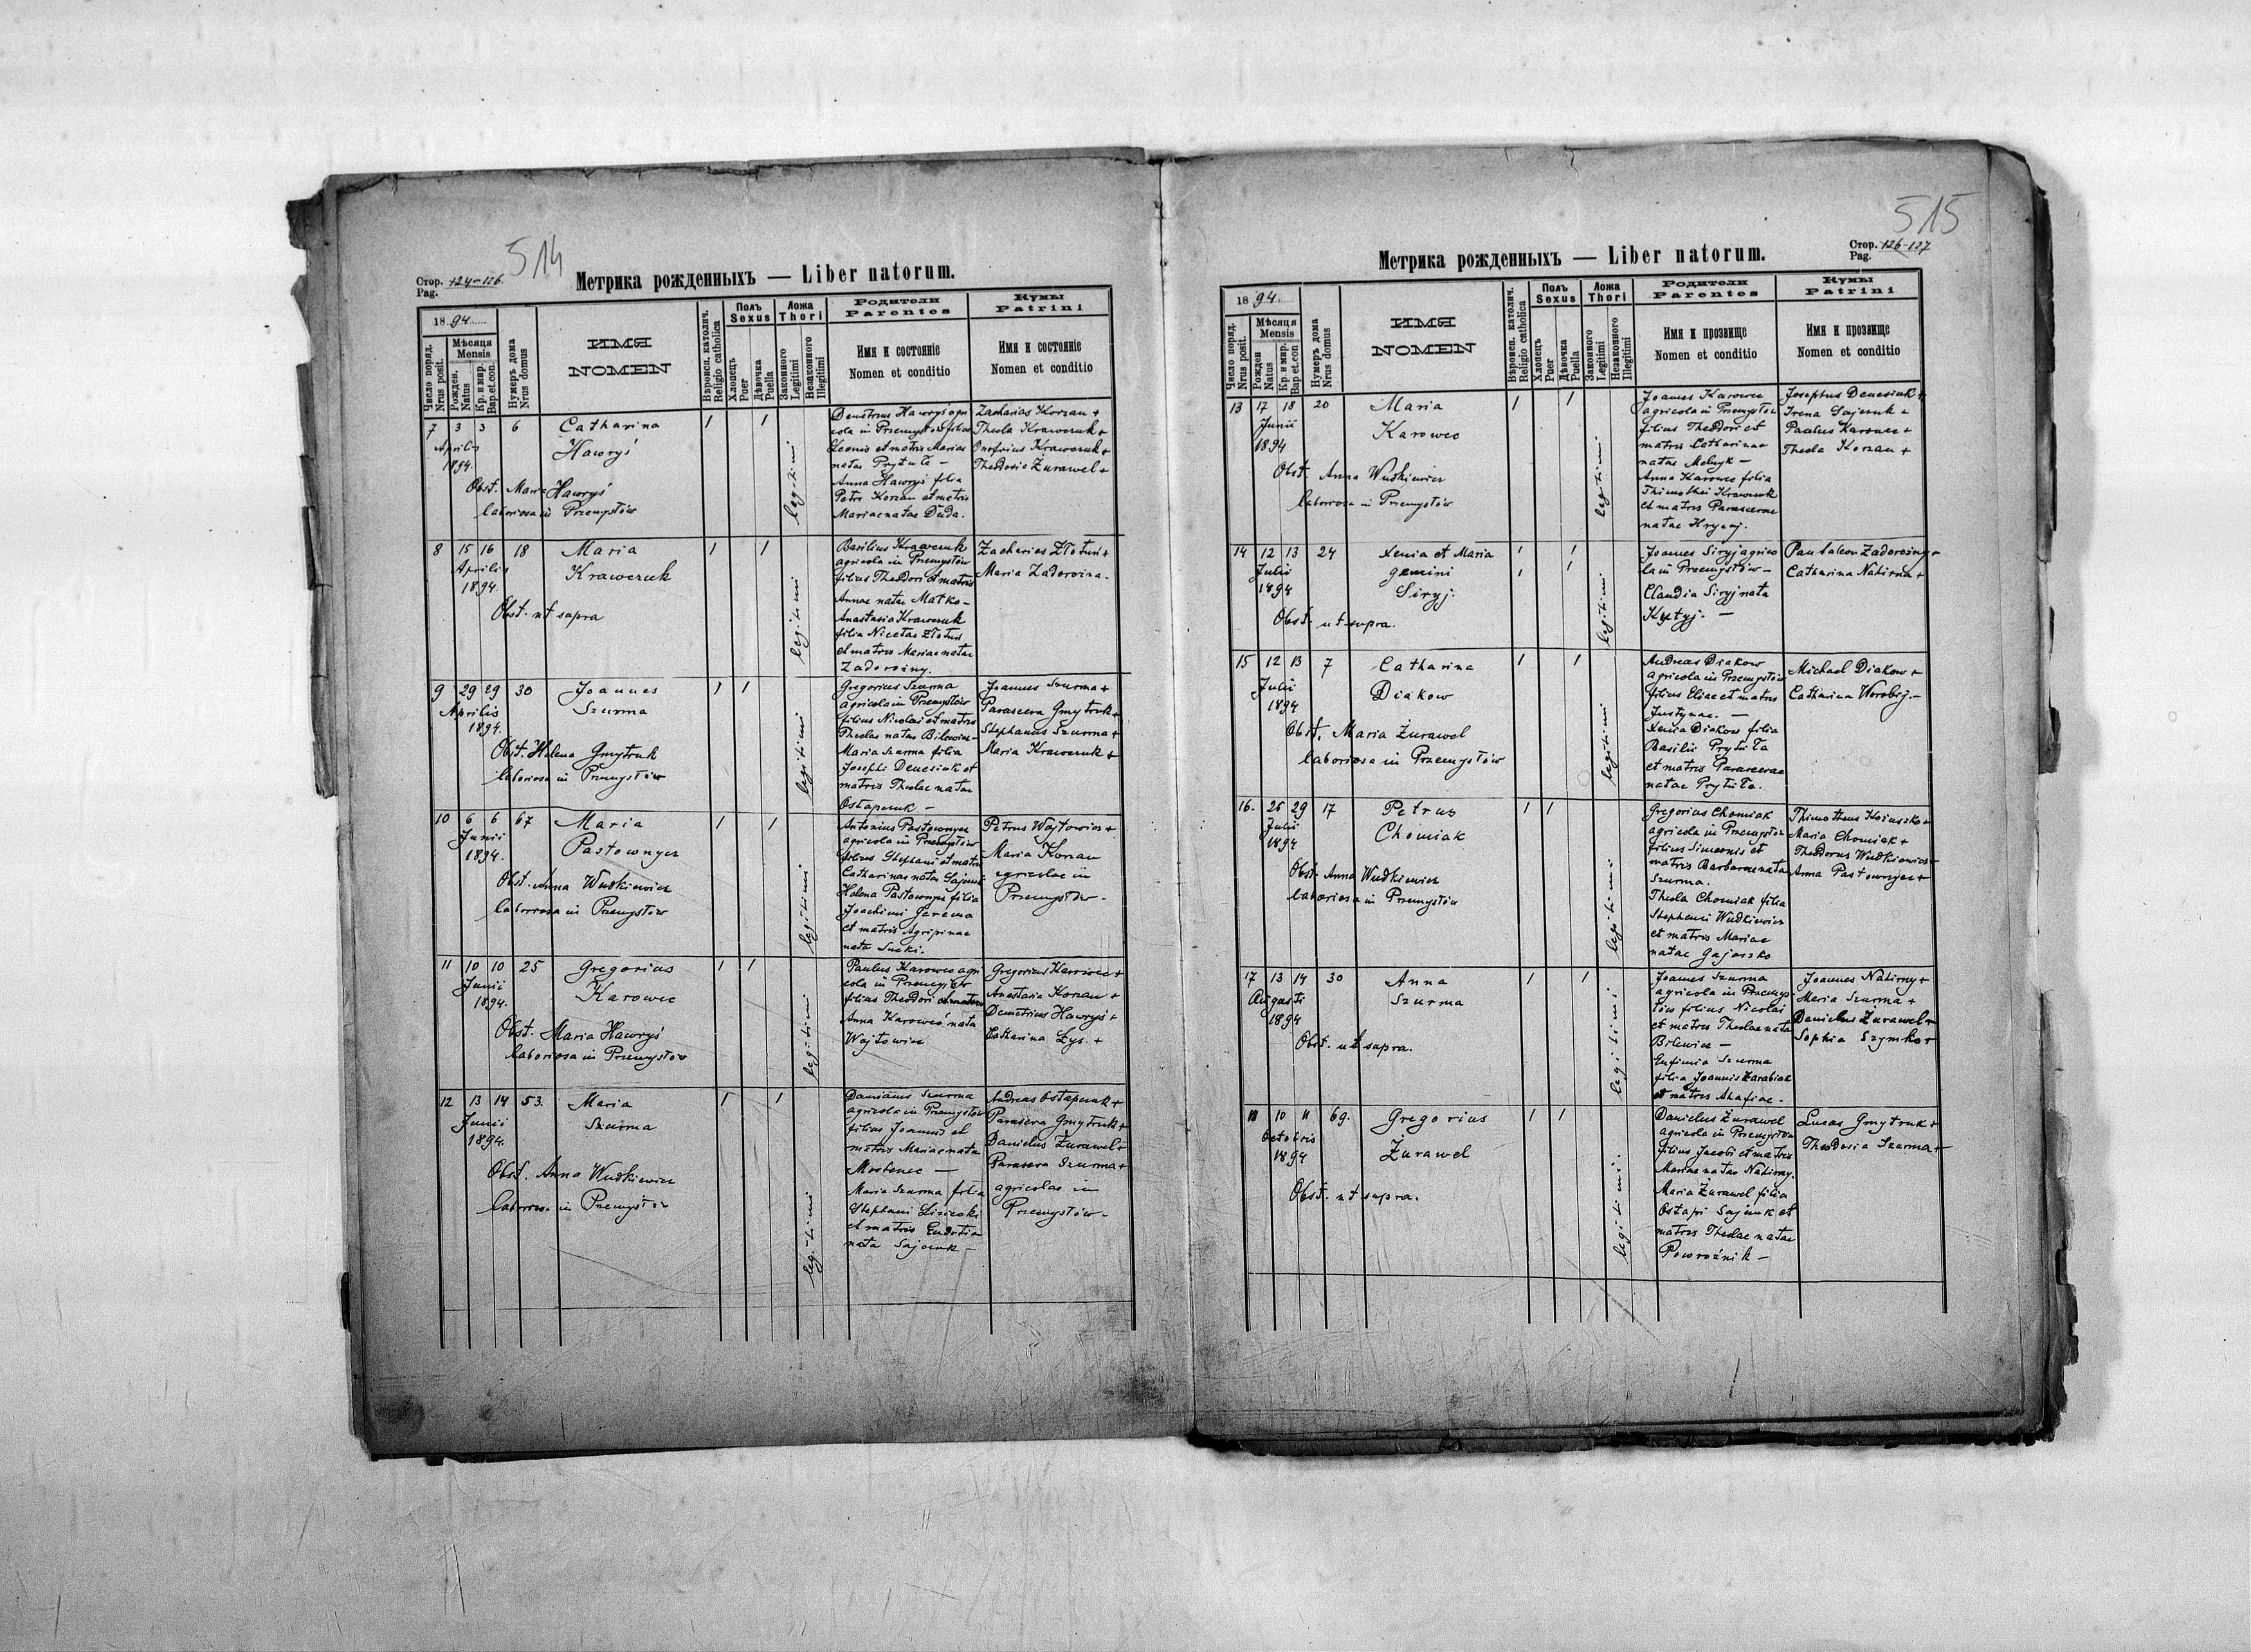 514
Стор. 124-126.
Pag.
Метрика рожденныхъ — Liber natorum.
1894
Число поряд.
Nrus posit.
Мѣсяця
Mensis
Рожден.
Natus
Кр. и мир.
Bap.et.con.
Нумеръ дома
Nrus domus
ИМЯ
NOMEN
Вѣроисп. католич.
Religio catholica
Полъ
Sexus
Хлопецъ
Puer
Дѣвочка
Puella
Ложа
Thori
Законного
Legitimi
Незаконного
Illegitimi
Родители
Parentes
Имя и состояніе
Nomen et conditio
Кумы
Patrini
Имя и состояніе
Nomen et conditio
7 3 3 6 Catharina 1 1
Aprilis Hawryś
1894.
Obst. Maria Hawryś
laboriosa in Przemysłów
legitimi
Demetrius Hawryś agri
cola in Przemysłów filius
Leonis et matris Mariae
natae Prytuła –
Anna Hawryś filia
Petri Korzan et matris
Mariae natae Duda.
Zacharias Korzan +
Thecla Krawczuk +
Onofrius Krawczuk +
Theodosia Żurawel +
8 15 16 18 Maria 1 1
Aprilis Krawczuk
1894.
Obst. ut supra
legitimi
Basilius Krawczuk
agricola in Przemysłów
filius Theodori et matris
Annae natae Matko –
Anastasia Krawczuk
filia Nicetae Złotuń
et matris Mariae natae
Zadorożny.
Zacharias Złotuń +
Maria Zadorożna.
9 29 29 30 Joannes 1 1
Aprilis Szurma
1894.
Obst. Helena Gmytruk
laboriosa in Przemysłów
legitimi
Gregorius Szurma
agricola in Przemysłów
filius Nicolai et matris
Theclae natae Bilewicz –
Maria Szurma filia
Josephi Denesiuk et
matris Theclae natae
Ostapczuk –
Joannes Szurma +
Parasceva Gmytruk +
Stephanus Szurma +
Maria Krawczuk +
10 6 6 67 Maria 1 1
Junii Pastownycz
1894.
Obst. Anna Wudkiewicz
laboriosa in Przemysłów
legitimi
Antonius Pastownycz
agricola in Przemysłów
filius Stephani et matris
Catharinae natae Sajczuk
Helena Pastownycz filia
Joachimi Jarema
et matris Agripinae
nata Sucki.
Petrus Wojtowicz +
Maria Korzan
agricolae in
Przemysłów.
11 10 10 25 Gregorius 1 1
Junii Karowec
1894.
Obst. Maria Hawryś
laboriosa in Przemysłów
legitimi
Paulus Karowec agri
cola in Przemysłów
filius Theodori et matris
Anna Karowec nata
Wojtowicz
Gregorius Karowec +
Anastasia Korzan +
Demetrius Hawryś +
Catharina Łys. +
12 13 14 53. Maria 1 1
Junii Szurma
1894.
Obst. Anna Wudkiewicz
laboriosa in Przemysłów
legitimi
Damianus Szurma
agricola in Przemysłów
filius Joannis et
matris Mariae nata
Mostenec –
Maria Szurma filia
Stephani Lisiecki
et matris Eudotia
nata Sajczuk –
Andreas Ostapczuk +
Parasceva Gmytruk +
Danielus Żurawel +
Parasceva Szurma +
agricolae in
Przemysłów –
515
Стор. 126-127
Pag.
Метрика рожденныхъ — Liber natorum.
1894
Число поряд.
Nrus posit.
Мѣсяця
Mensis
Рожден
Natus
Кр. и мир.
Bap et.con
Нумеръ дома
Nrus domus
ИМЯ
NOMEN
Вѣроисп. католич.
Religio catholica
Полъ
Sexus
Хлопецъ
Puer
Дѣвочка
Puella
Ложа
Thori
Законного
Legitimi
Незаконного
Illegitimi
Родители
Parentes
Имя и прозвище
Nomen et conditio
Кумы
Patrini
Имя и прозвище
Nomen et conditio
13 17 18 20 Maria 1 1
Junii Karowec
1894
Obst. Anna Wudkiewicz
laboriosa in Przemysłów
legitimi
Joannes Karowec
agricola in Przemysłów
filius Theodori et
matris Catharinae
natae Melnyk –
Anna Karowec filia
Thimothei Krawczuk
et matris Parascevae
natae Hrycaj.
Josephus Denesiuk +
Irena Sajczuk +
Paulus Karowec +
Thecla Korzan +
14 12 13 24 Xenia et Maria 1 1
Julii gemini 1 1
1894 Siryj.
Obst. ut supra.
legitimi
Joannes Siryj agrico
la in Przemysłów –
Claudia Siryj nata
Kystyj. –
Pantaleon Zadorożny +
Catharina Nahirna +
15 12 13 7 Catharina 1 1
Julii Diakow
1894
Obst. Maria Żurawel
laboriosa in Przemysłów
legitimi
Andreas Diakow
agricola in Przemysłów
filius Eliae et matris
Justynae. –
Xenia Diakow filia
Basilii Prytuła
et matris Parascevae
natae Prytuła.
Michael Diakow +
Catharina Worobij. –
16. 26 29 17 Petrus 1 1
Julii Chomiak
1894
Obst. Anna Wudkiewicz
laboriosa in Przemysłów
legitimi
Gregorius Chomiak
agricola in Przemysłów
filius Simeonis et
matris Barbarae nata
Szurma.
Thecla Chomiak filia
Stephani Wudkiewicz
et matris Mariae
natae Gajoszko
Thimotheus Koiuszko +
Maria Chomiak +
Theodorus Wudkiewicz +
Anna Pastownycz +
17 13 14 30 Anna 1 1
Augusti Szurma
1894
Obst. ut supra.
legitimi
Joannes Szurma
agricola in Przemys
łów filius Nicolai
et matris Theclae nata
Bilewicz –
Eufimia Szurma
filia Joannis Zarabiak
et matris Ahafiae.
Joannes Nahirny +
Maria Szurma +
Danielus Żurawel +
Sophia Szymko +
18 10 11 69. Gregorius 1 1
Octobris Żurawel
1894
Obst. ut supra.
legitimi.
Danielus Żurawel
agricola in Przemysłów
filius Jacobi et matris
Mariae natae Nahirny.
Maria Żurawel filia
Ostapi Sajczuk et
matris Theclae natae
Powroźnik –
Lucas Gmytruk +
Theodosia Szurma +